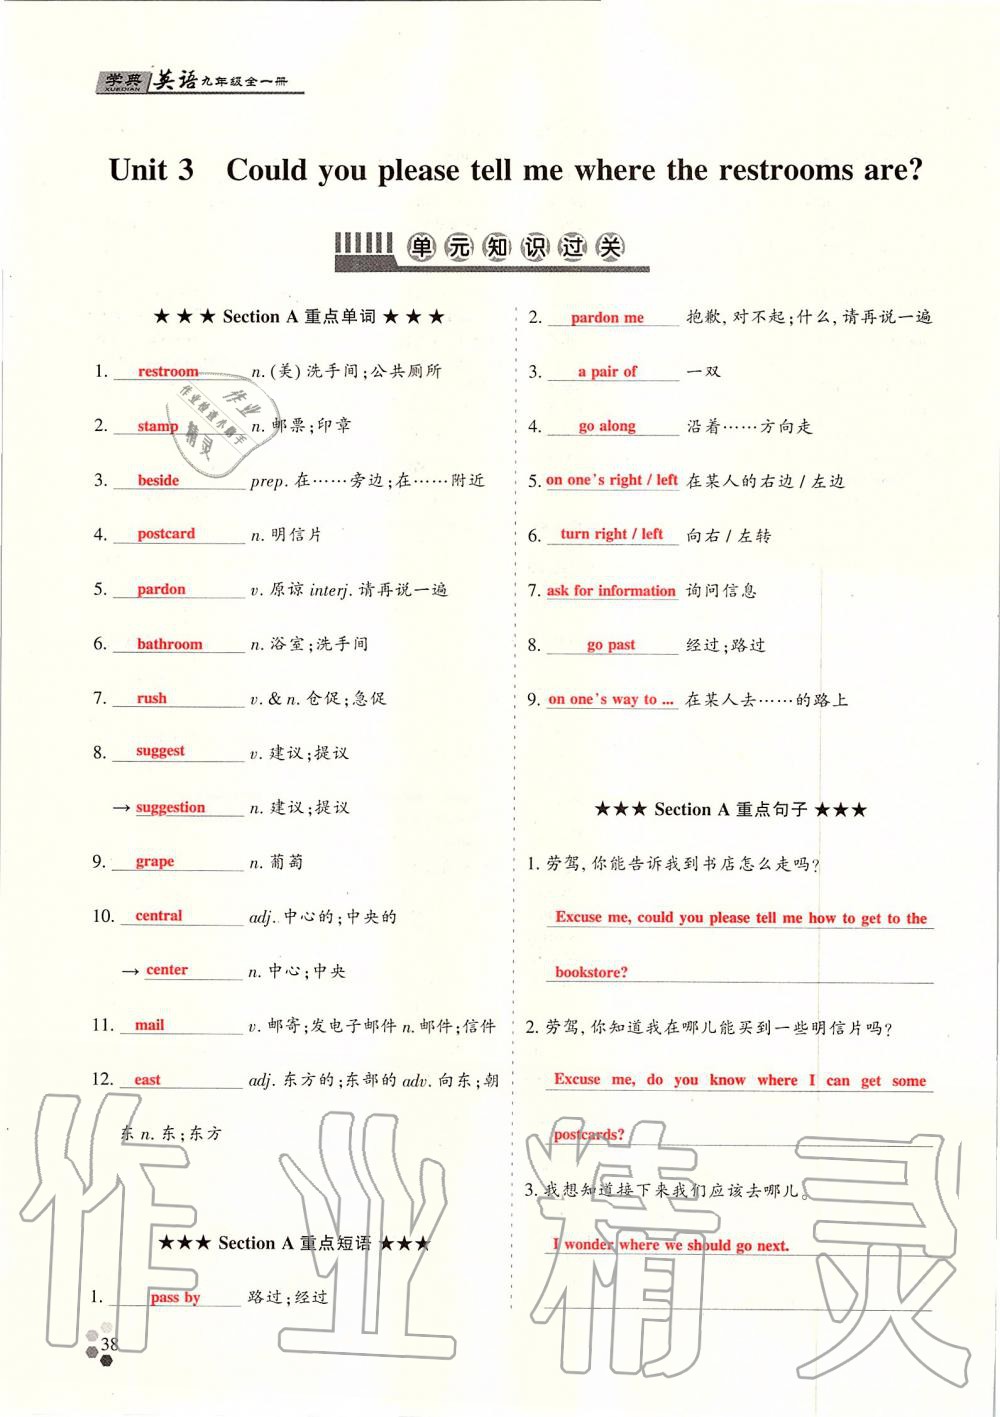 学典 XUEDIAN 英语九年级全一册
Unit 3 Could you please tell me where the restrooms are?
单元知识过关
★ ★ ★ Section A 重点单词 ★ ★ ★
1. restroom n. (美)洗手间;公共厕所
2. stamp n. 邮票;印章
3. beside prep. 在……旁边;在……附近
4. postcard n. 明信片
5. pardon v. 原谅 interj. 请再说一遍
6. bathroom n. 浴室;洗手间
7. rush v. & n. 仓促;急促
8. suggest v. 建议;提议
→ suggestion n. 建议;提议
9. grape n. 葡萄
10. central adj. 中心的;中央的
→ center n. 中心;中央
11. mail v. 邮寄;发电子邮件 n. 邮件;信件
12. east adj. 东方的;东部的 adv. 向东;朝
东 n. 东;东方
★★★ Section A 重点短语 ★★★
1. pass by 路过;经过
2. pardon me 抱歉,对不起;什么,请再说一遍
3. a pair of 一双
4. go along 沿着……方向走
5. on one's right / left 在某人的右边 / 左边
6. turn right / left 向右 / 左转
7. ask for information 询问信息
8. go past 经过;路过
9. on one's way to ... 在某人去……的路上
★★★ Section A 重点句子 ★★★
1. 劳驾,你能告诉我到书店怎么走吗?
Excuse me, could you please tell me how to get to the
bookstore?
2. 劳驾,你知道我在哪儿能买到一些明信片吗?
Excuse me, do you know where I can get some
postcards?
3. 我想知道接下来我们应该去哪儿。
I wonder where we should go next.
38
作业
作业检查小助手
精灵
作业精灵